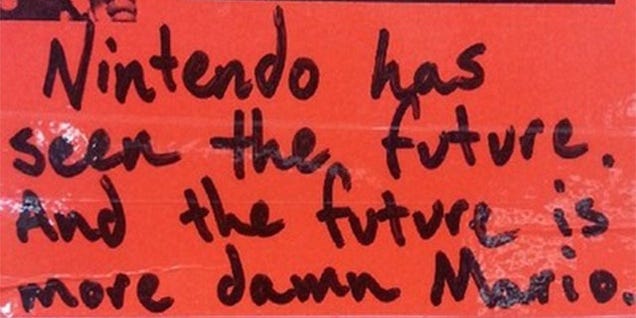 Nintendo has
seen the future.
And the future is
more damn Mario.